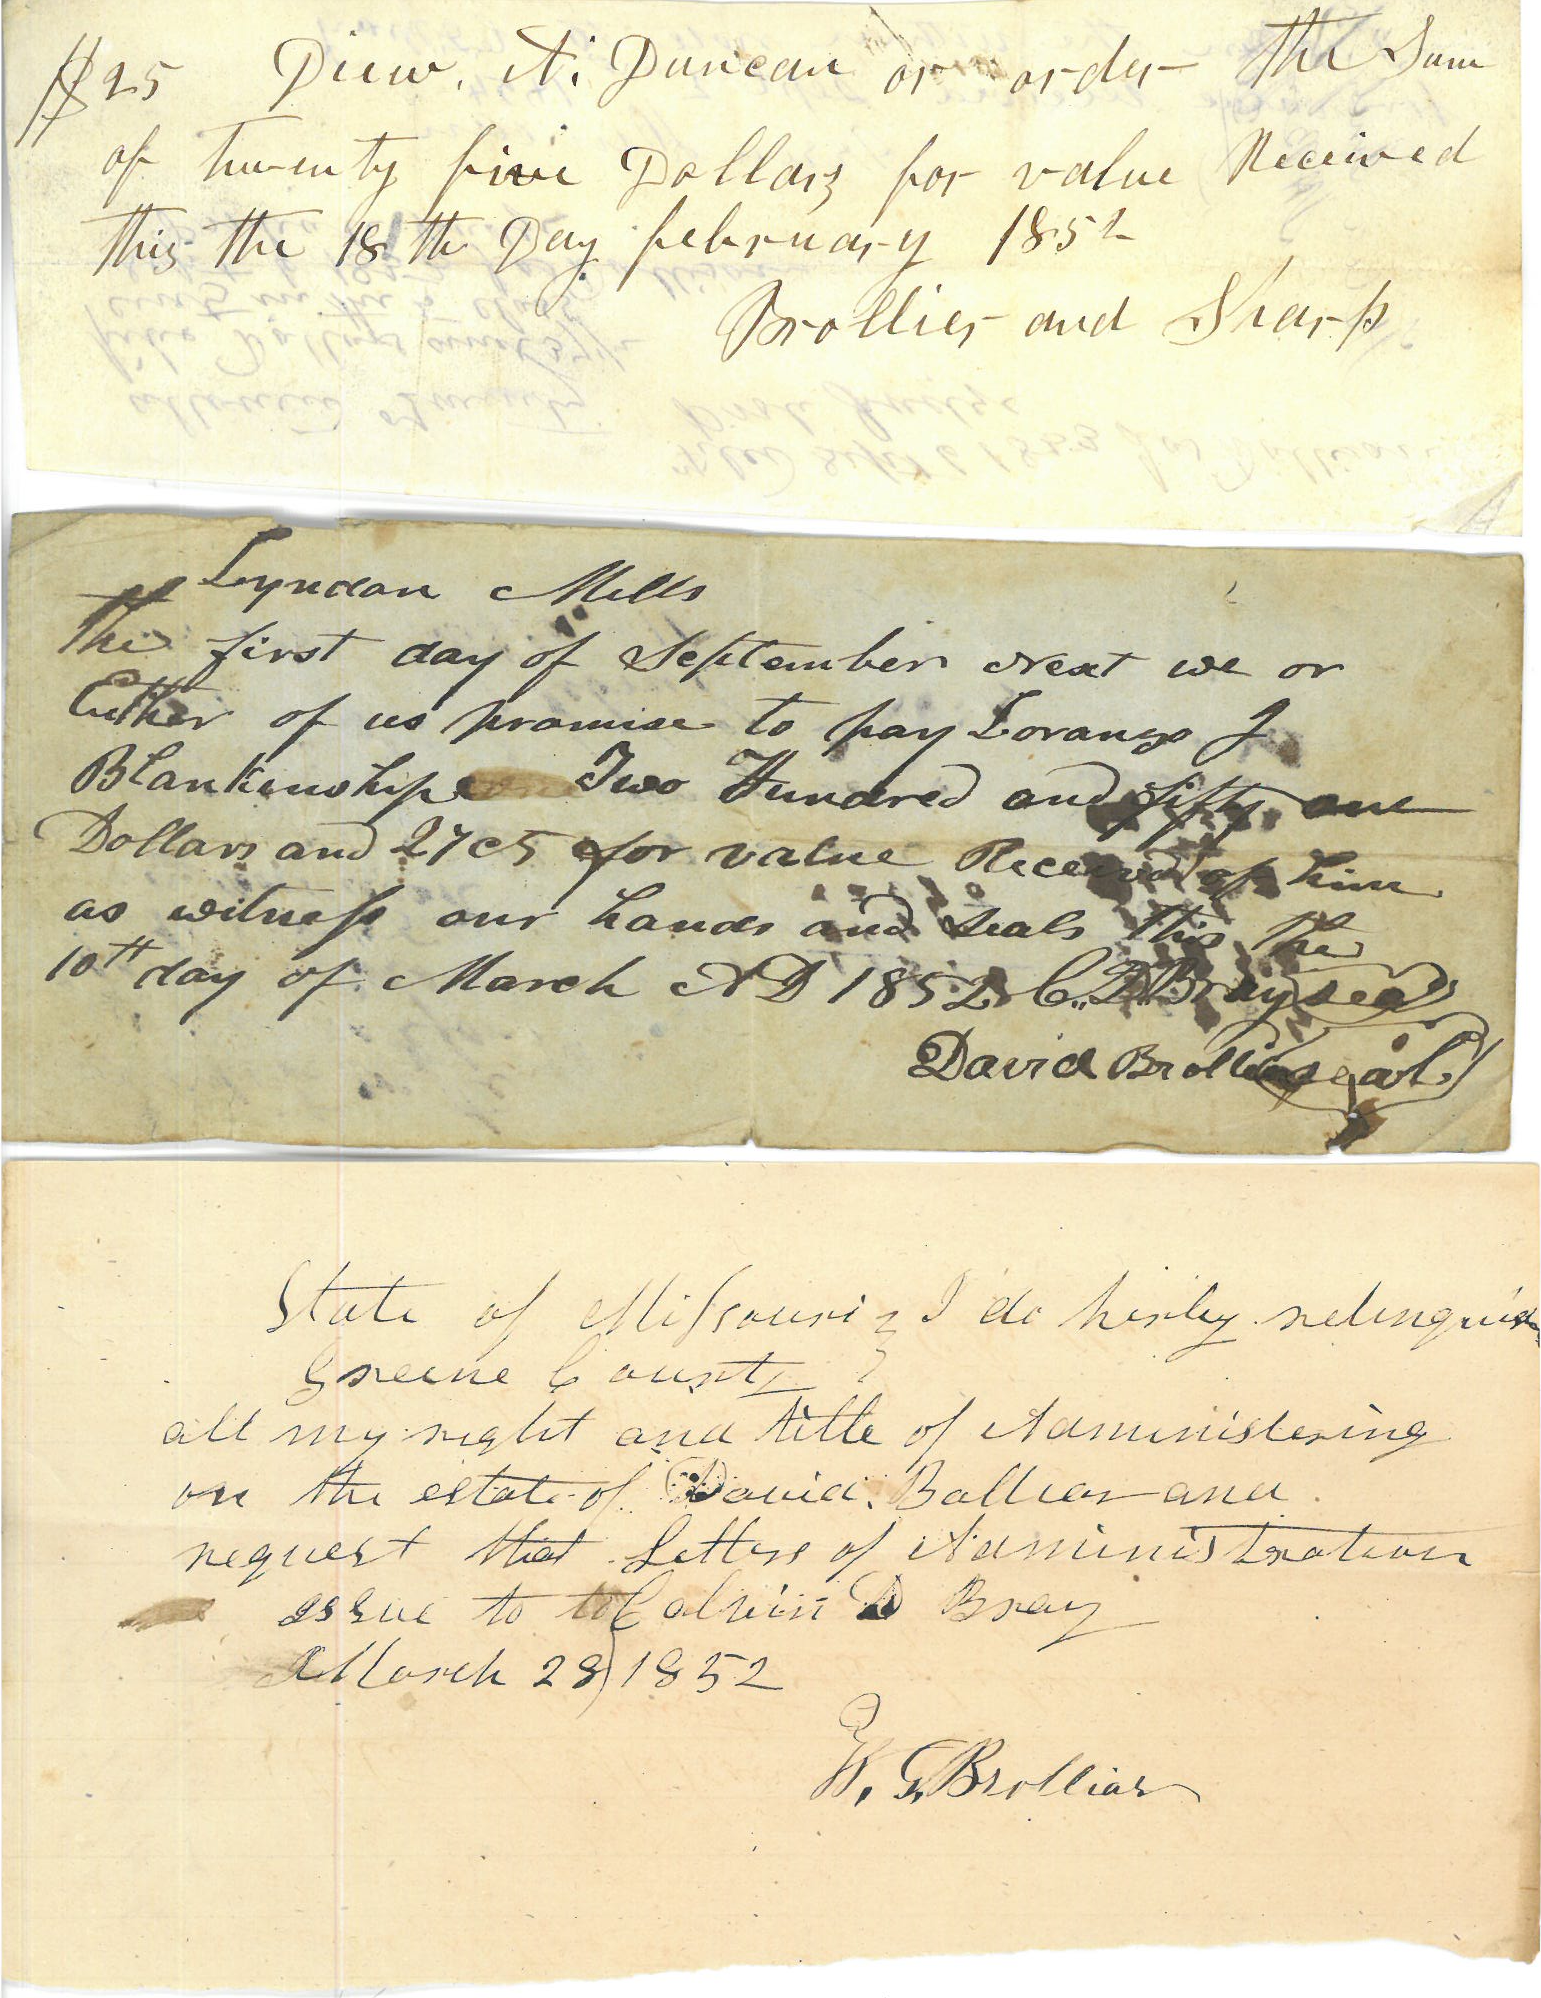 $25 Diew. A. Duncan or order the Sum
of twenty five Dollars for value Received
this the 18th Day february 1852
Brollier and Sharp
Lyndon Mills
The first day of September Next we or
Either of us promise to pay Lorango J
Blankinship Two Hundred and fifty one
Dollars and 27 cts for value Received of him
as witness our hands and seals this the
10th day of March AD 1852 C. D. Bray seal
David Brollier seal
State of Missouri } I do hereby relinquish
Greene County }
all my right and title of Administering
on the estate of David Bolliar and
request that Letters of Administration
issue to to Calvin D Bray
March 28 1852
W. G. Brolliar